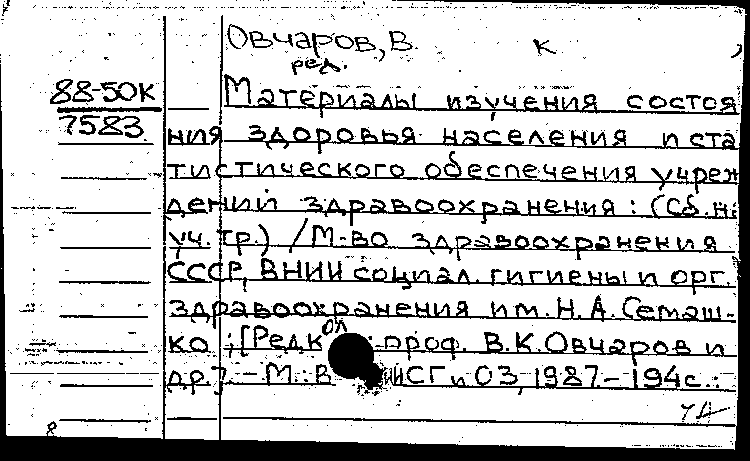 Овчаров, В. К
ред.
88-50К
7583
Материалы изучения состоя
ния здоровья населения и ста
тистического обеспечения учреж
дений здравоохранения : (Сб. н.
уч. тр.) / М-во здравоохранения
СССР, ВНИИ социал. гигиены и орг.
здравоохранения им. Н. А. Семаш-
ко ; [Редкол : проф. В. К. Овчаров и
др.]. - М. : СГ и ОЗ, 1987 - 194 с. :